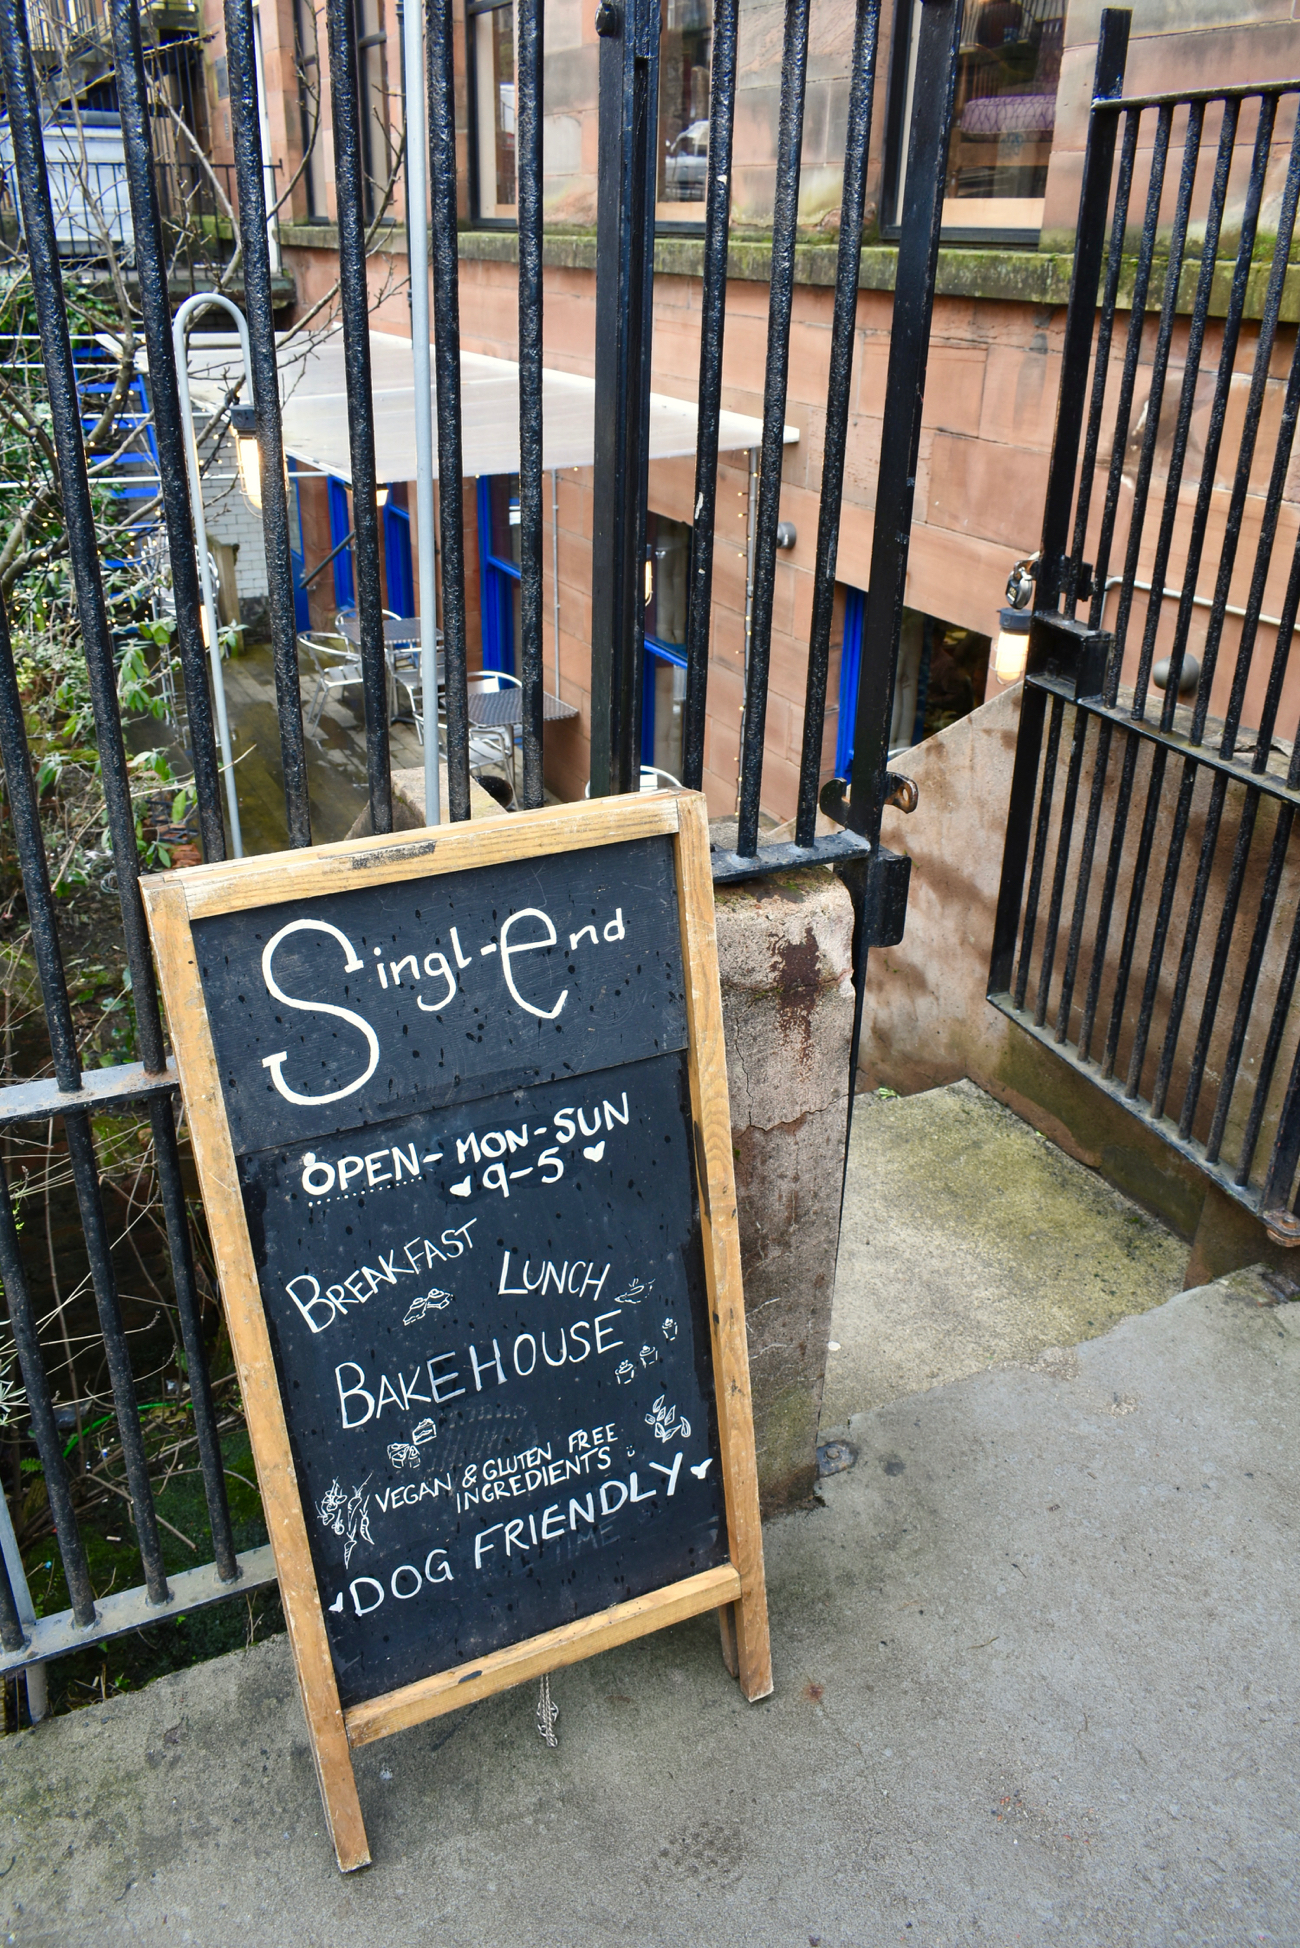 Singl-end
OPEN- MON-SUN
9-5
BREAKFAST
LUNCH
BAKEHOUSE
VEGAN & GLUTEN FREE
INGREDIENTS
DOG FRIENDLY